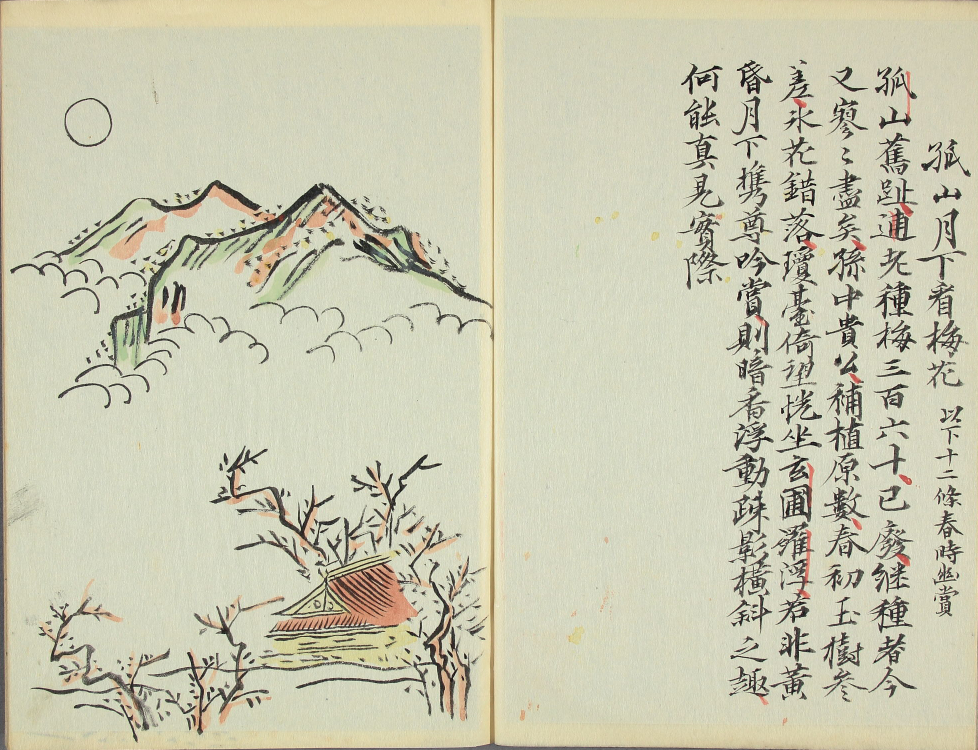 孤山月下看梅花 以下十二條春時幽賞
孤山舊趾逋老種梅三百六十已廢继種者今
又寥〻盡矣孫中貴公補植原數春初玉樹参
差氷花錯落瓊臺倚望恍坐玄圃羅浮若非黄
昏月下攜尊吟賞則暗香浮動疎影横斜之趣
何能真見實際